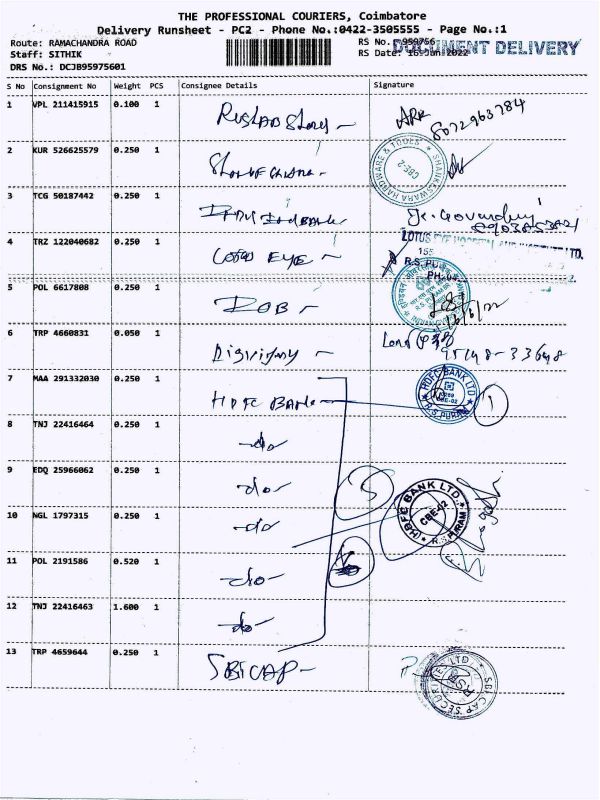 THE PROFESSIONAL COURIERS, Coimbatore
Delivery Runsheet - PC2 - Phone No.:0422-3505555 - Page No.:1
Route: RAMACHANDRA ROAD
Staff: SITHIK
DRS No.: DCJB95975601
RS No. 959756
RS Date: 16-Jun-2022
DOCUMENT DELIVERY
S No Consignment No Weight PCS Consignee Details Signature
1 VPL 211415915 0.100 1
ARK
8072963784
2 KUR 526625579 0.250 1
SHANKESWARA HARDWARE & TOOLS
CBE-2
3 TCG 50187442 0.250 1
4 TRZ 122040682 0.250 1 Lotus EYE
LOTUS EYE HOSPITAL AND INSTITUTE LTD.
R.S. PU
5 POL 6617808 0.250 1 IOB
R.S. PURAM
6 TRP 4660831 0.050 1
95148-33648
7 MAA 291332030 0.250 1 HDFC BANK
HDFC BANK LTD
CBE-02
R.S. PURAM
1
8 TNJ 22416464 0.250 1 -do-
9 EDQ 25966062 0.250 1 -do-
5
10 NGL 1797315 0.250 1 -do-
HDFC BANK LTD.
CBE-02
R.S. PURAM
11 POL 2191586 0.520 1 -do-
12 TNJ 22416463 1.600 1 -do-
13 TRP 4659644 0.250 1 SBICAP
SBI CAP SECURITIES LTD